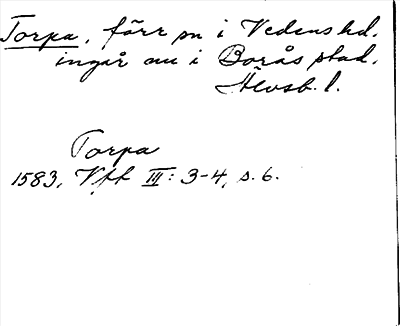 Torpa, förr sn i Vedens hd.
ingår nu i Borås stad.
Älvsb. l.
Torpa
1583, Vft III: 3-4, s. 6.